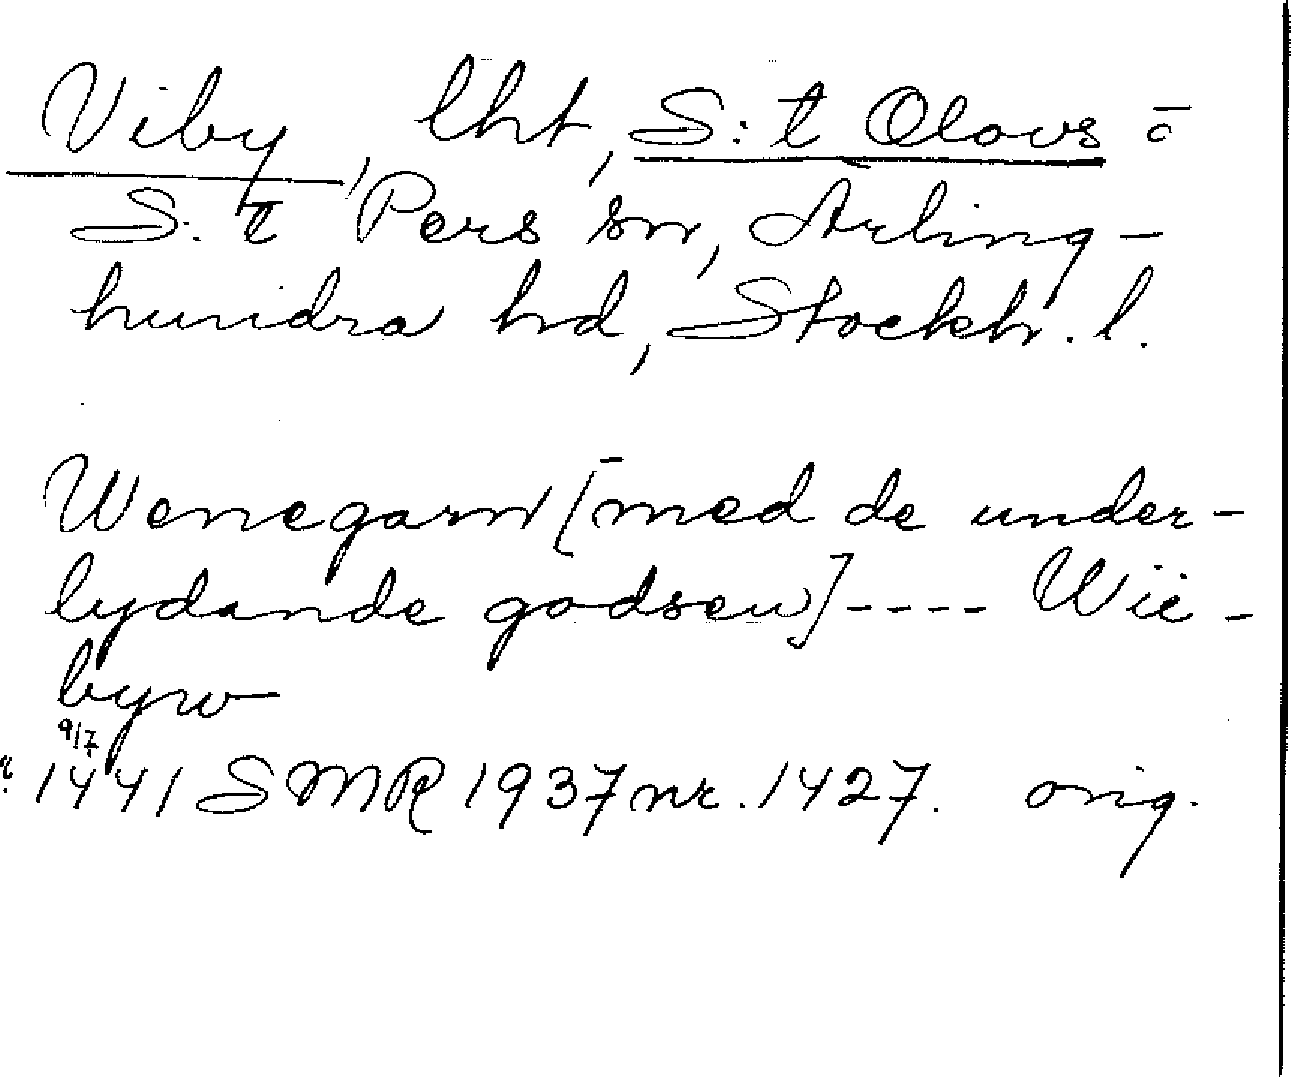 Viby, lht, S:t Olovs o
S:t Pers sn, Ärling-
hundra hd, Stockh. l.
Wenegarn [med de under-
lydande godsen] ---- Wii-
byn
9/7
1441 SMR 1937 nr. 1427. orig.